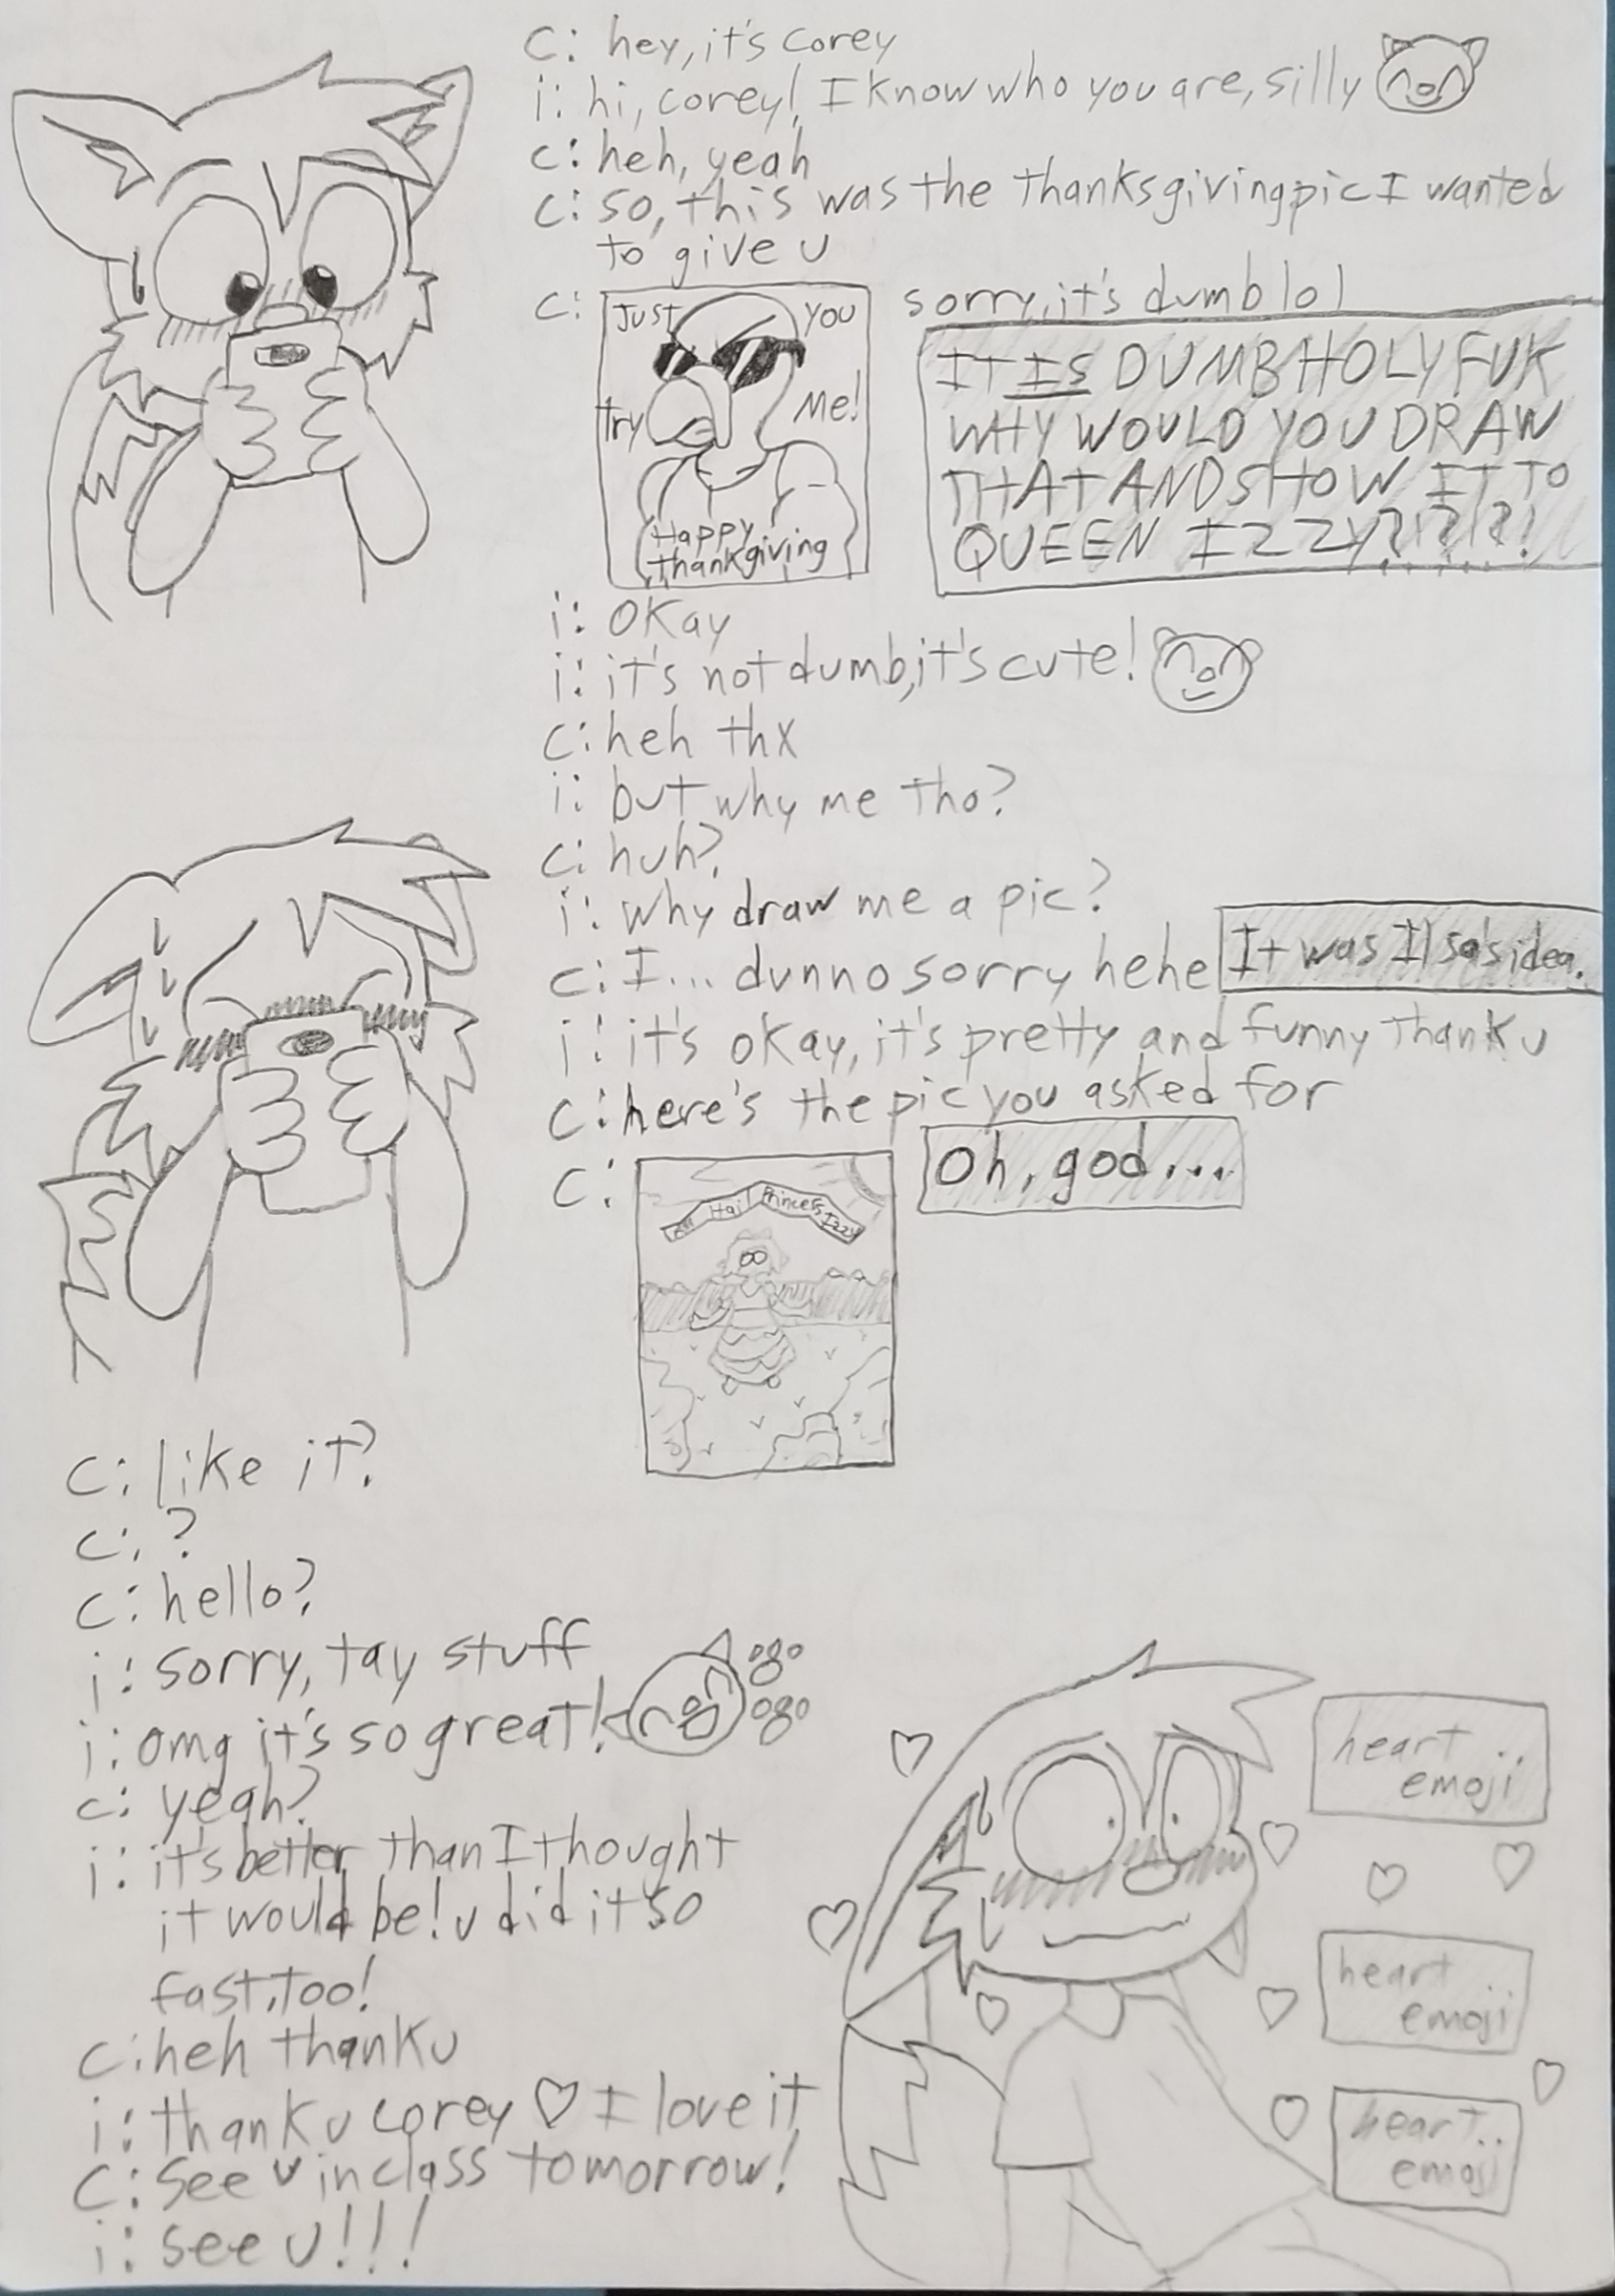 c: hey, it's corey
i: hi, corey! I know who you are, silly
c: heh, yeah
c: so, this was the thanksgiving pic I wanted
to give u
c:
Just
You
try
Me!
Happy
thankgiving
sorry, it's dumb lol
IT IS DUMB HOLY FUK
WHY WOULD YOU DRAW
THAT AND SHOW IT TO
QUEEN IZZY?!?!?!
i: okay
i: it's not dumb, it's cute!
c: heh thx
i: but why me tho?
c: huh?
i: why draw me a pic?
c: I... dunno sorry hehe
It was Ilsa's idea.
i: it's okay, it's pretty and funny thank u
c: here's the pic you asked for
c:
All Hail Princess Izzy
Oh, god...
c: like it?
c: ?
c: hello?
i: sorry, tay stuff
i: omg it's so great!
c: yeah?
i: it's better than I thought
it would be! u did it so
fast, too!
c: heh thank u
i: thank u corey ♡ I love it
c: see u in class tomorrow!
i: see u!!!
heart
emoji
heart
emoji
heart
emoji